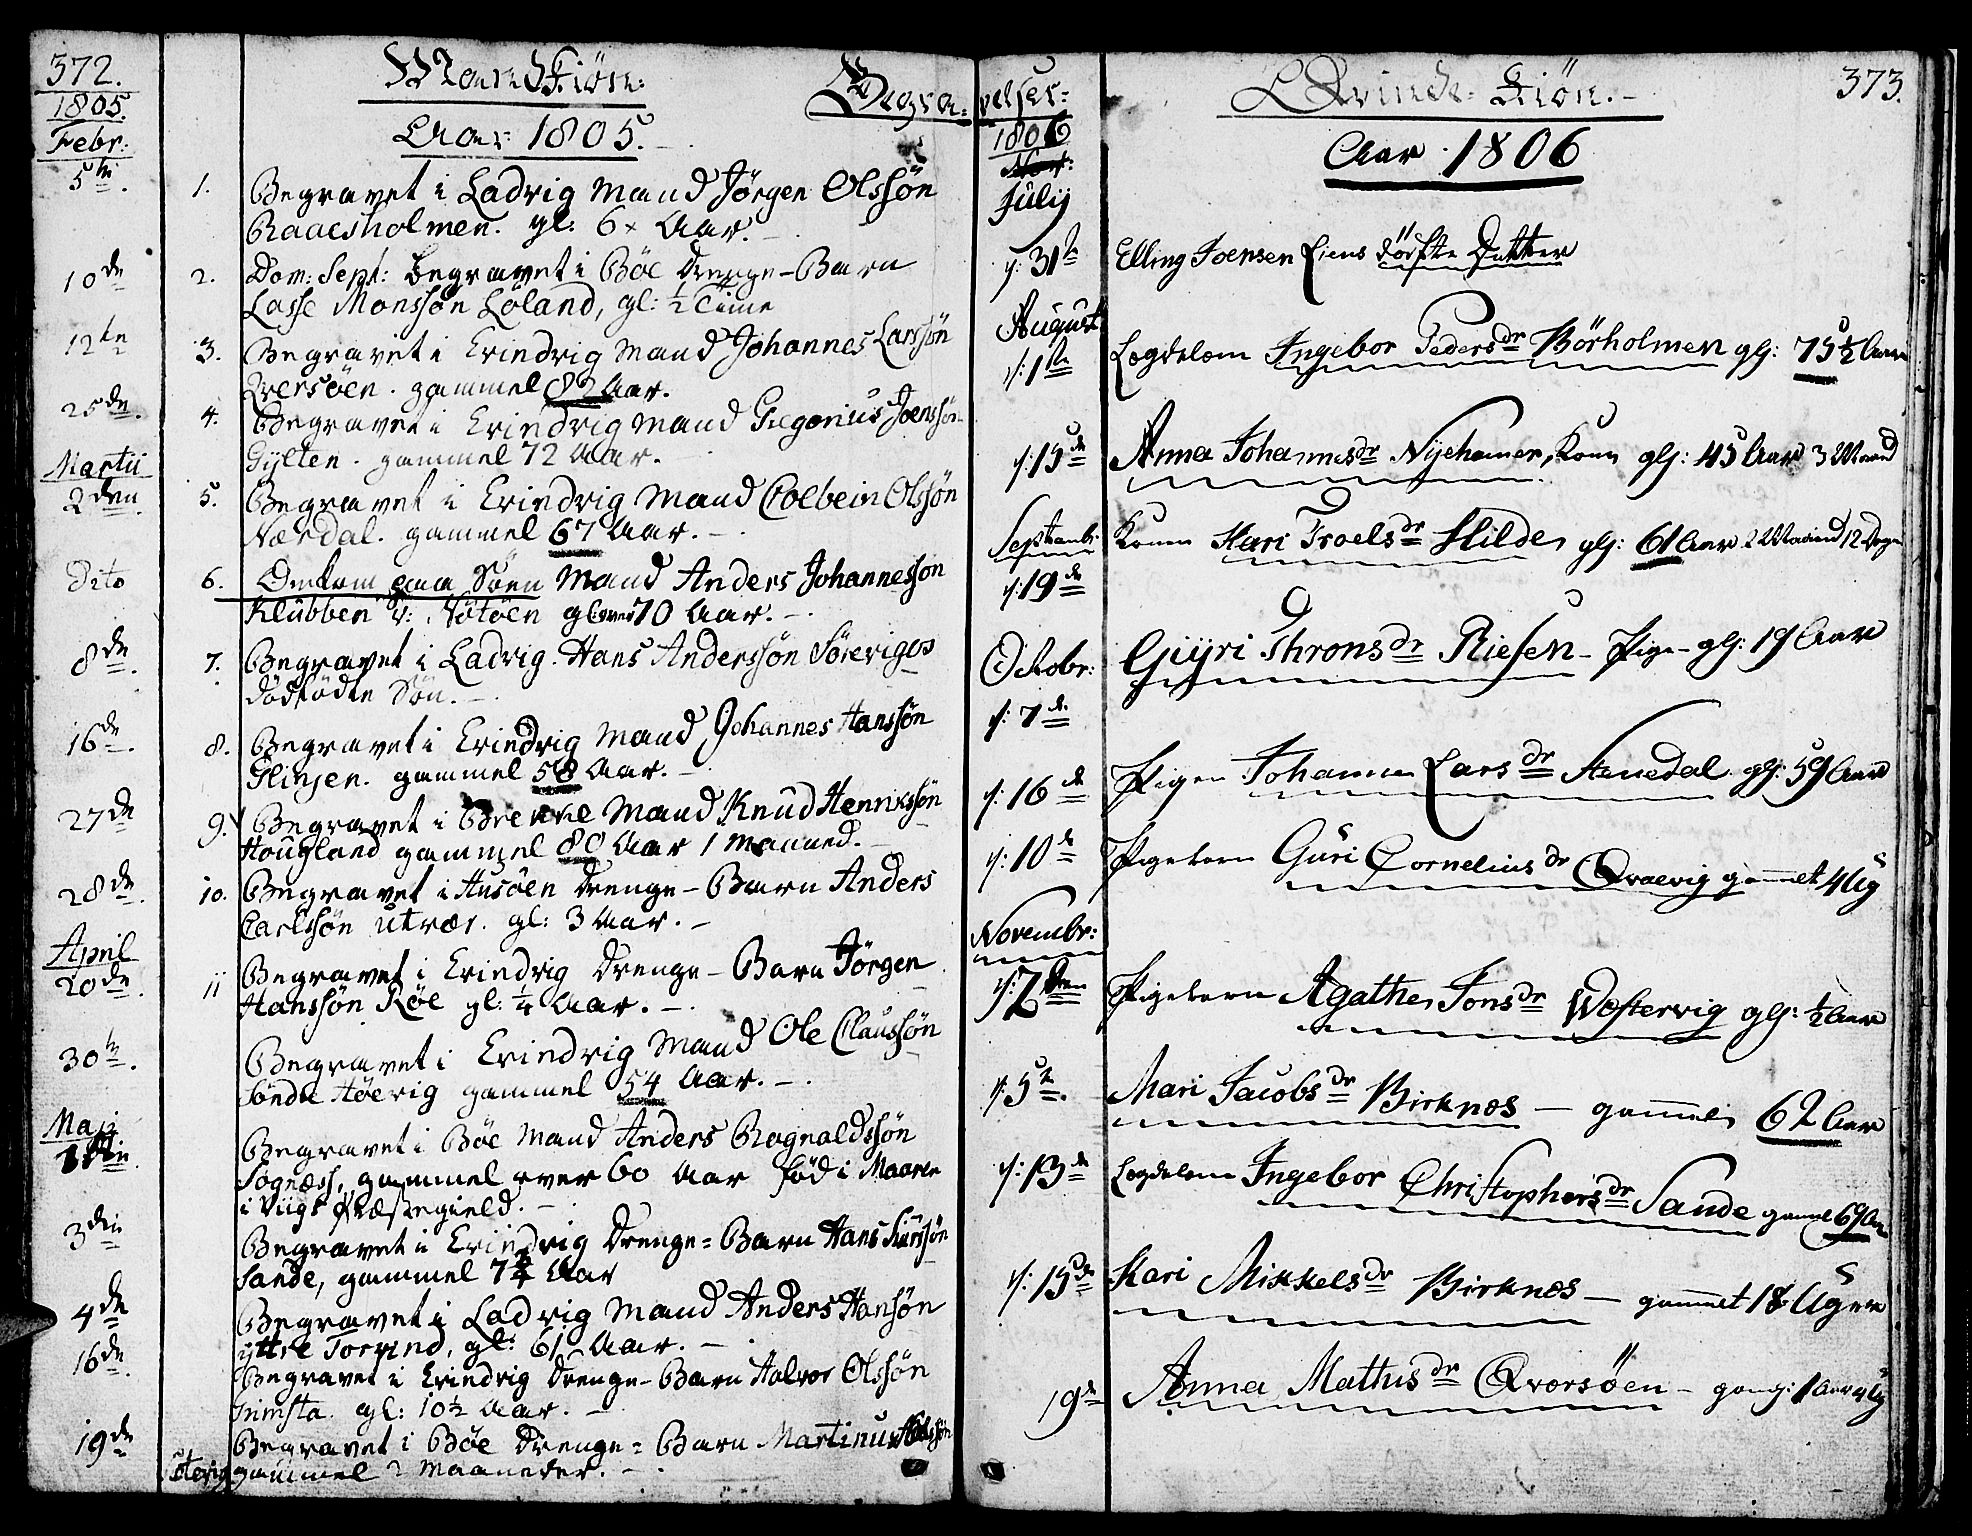 372.
MandKiön:
Begra=
1805.
Aar 1805.
Febr:
5te. 1. Begravet i Ladvig Mand Jörgen Olssön
Raaesholmen. gl: 6 Aar.
10de 2. Dom: Sept: begravet i Böe Drenge-Barn
Lasse Monssön Löland, gl: 1/2 Time
12te 3. Begravet i Evindvig Mand Johannes Larssön
Qversöen. gammel 82 Aar.
25de. 4. Begravet i Evindvig Mand Gregorius Joenssön
Gylten. gammel 72 Aar.
Martii
2den. 5. Begravet i Evindvig Mand Colbein Olssön
Nærdal. gammel 67 Aar.
Dito 6. Omkom paa Söen Mand Anders Johannessön
Klubben v: gl over 70 Aar.
8de. 7. Begravet i Ladvig. Hans Anderssön Söreviges
dödfödte Sön.
16de. 8. Begravet i Evindvig Mand Johannes Hanssön
Glinjen. gammel 58 Aar.
27de 9. Begravet i Brekke Mand Knud Henrikssön
Hougland gammel 80 Aar 1 Maaned.
28de. 10. Begravet i Husöen Drenge-Barn Anders
Carlssön Utvær. gl: 3 Aar.
April
20de. 11 Begravet i Evindvig Drenge-Barn Jörgen
Hanssön Röe gl: 1/4 Aar.
30te. Begravet i Evindvig Mand Ole Claussön
Söndre Höevig gammel 54 Aar.
Maji
1ste. Begravet i Böe Mand Anders Rognaldssön
Sognæss, gammel over 60 Aar föd i Maaren
i Viigs Præstegield.
3die Begravet i Evindvig Drenge=Barn Hans
Sande, gammel 7 Aar
4de Begravet i Ladvig Mand Anders Hansön
yttre Torvind, gl: 61 Aar.
16de. Begravet i Evindvig Drenge-Barn Halvor Olssön
gl: 10 1/2 Aar.
19de Begravet i Böe Drenge=Barn Martinus
gammel 2 Maaneder.
velser=
Qvinde=Kiön.
373.
1806
Aar 1806
Julij
d: 31te Elling Joensen Liens dödföte Datter
August
d: 1ste Legdelem Ingebor Pedersdr Börholmen glj: 75 1/2 Aar
d: 15de Anna Johannesdr Nyehamer, Konn glj: 45 Aar 3 Maand
Septembr: Konen Kari Troelsdr Hilde, glj: 61 Aar 2 Maaned 12 Dage
d: 19de
Octobr: Güri Thronsdr Riesen - Pige - glj: 19 Aar
d: 7de
d: 16de Pigen Johanna Larsdr Stenedal glj: 59 Aar
d: 10de Pigebarn Güri Corneliusdr Qvaevig gammel 4 Ug
Novembr:
d: 2den Pigebarn Agathe Jonsdr Westervig glj: 1/2 Aar
d: 5te. Mari Jacobsdr Birknes — gammel 62 Aar
d: 13de Legdelem Ingebor Christophersdr Sande gammel 69 Aar
d: 15de Kari Mikkelsdr Birknes — gammel 18 Uger
19de Anna Mathisdr Qvorsöen - gamel: 1 Aar 4 Ug